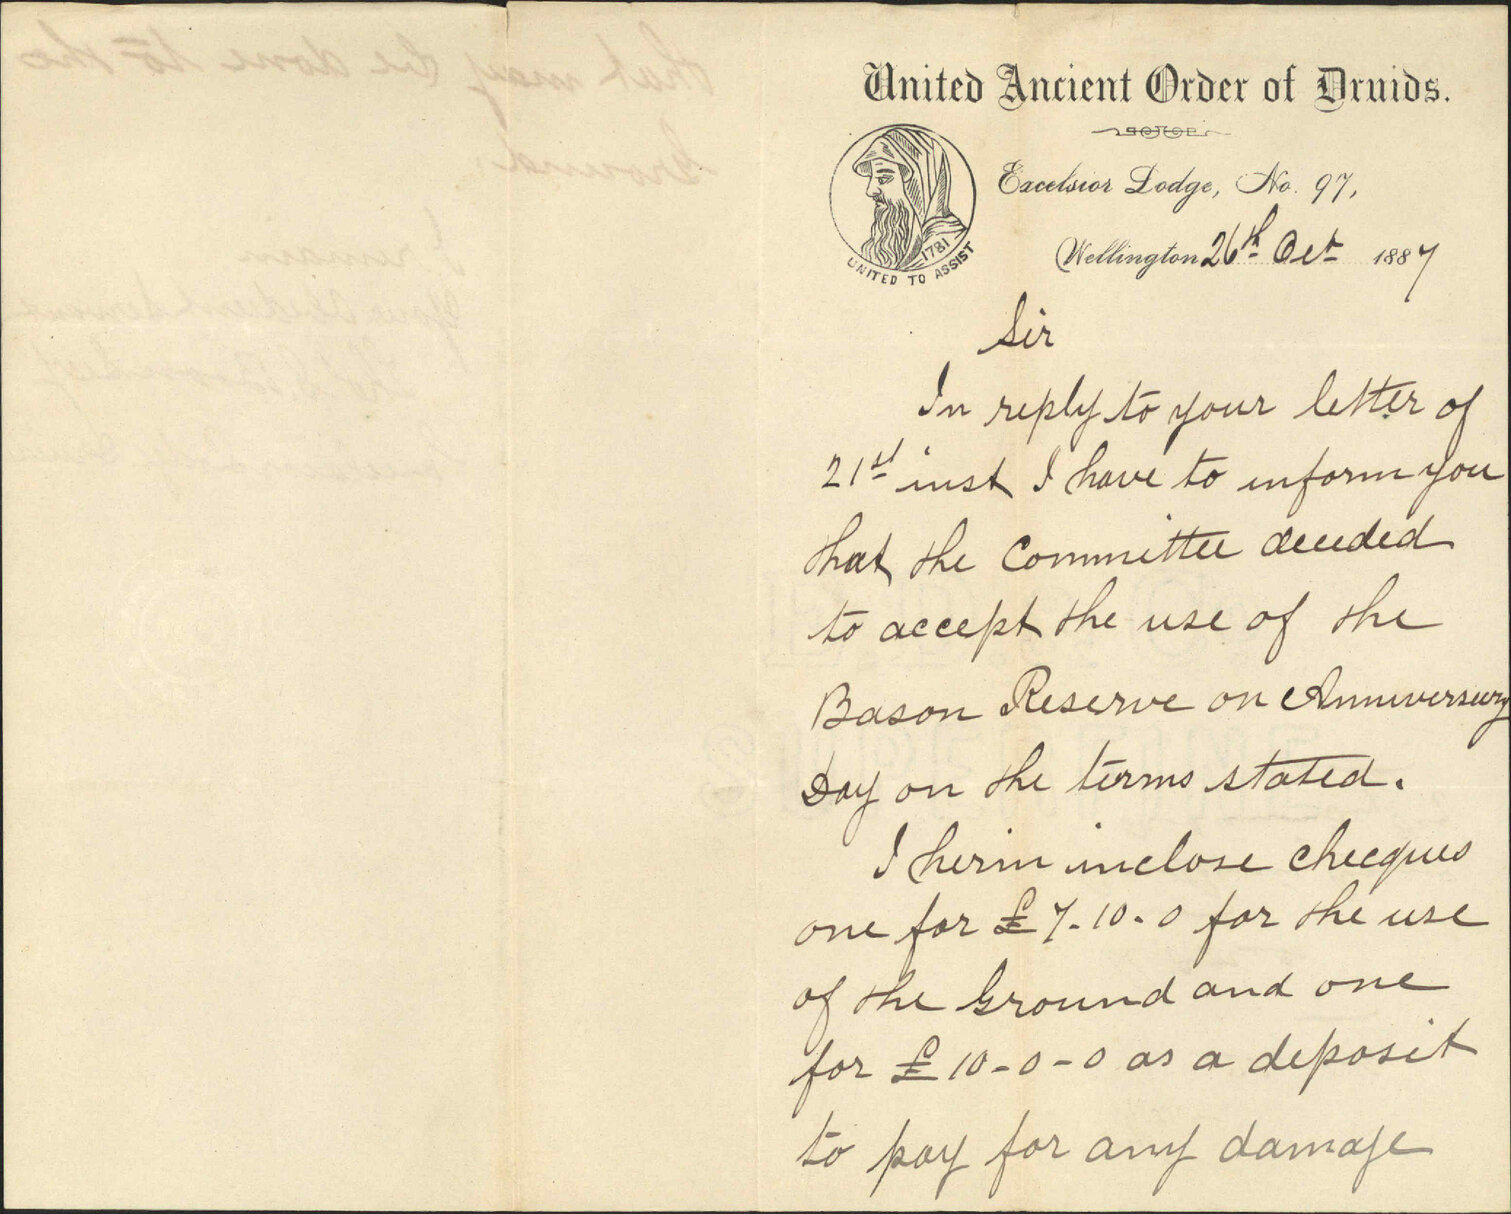 United Ancient Order of Druids.
Excelsior Lodge, No. 97,
1781
UNITED TO ASSIST
Wellington 26th Oct 1887
Sir
In reply to your letter of
21st inst I have to inform you
that the Committee decided
to accept the use of the
Bason Reserve on Anniversary
Day on the terms stated.
I herin inclose checques
one for £7-10-0 for the use
of the Ground and one
for £10-0-0 as a deposit
to pay for any damage
that may be done to the
Ground.
I remain
Your Obedient Servant